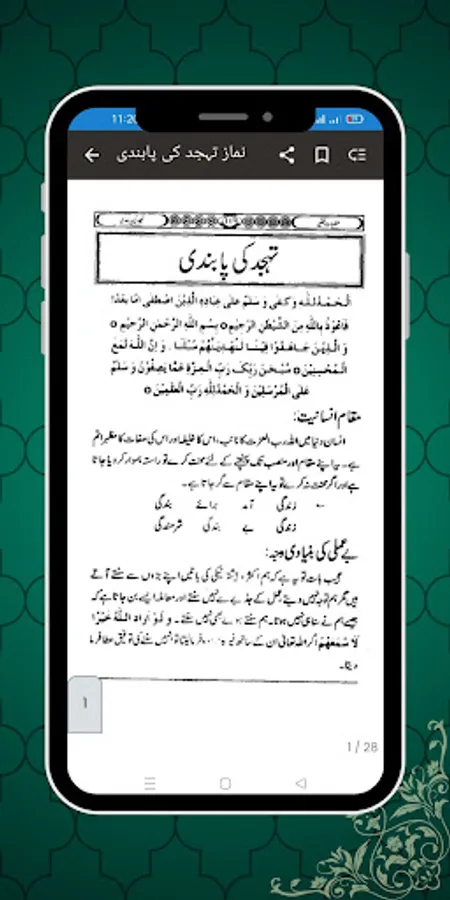 11:20
نماز تہجد کی پابندی
تہجد کی پابندی
اَلْحَمْدُ لِلّٰهِ وَ كَفٰى وَ سَلٰمٌ عَلٰى عِبَادِهِ الَّذِيْنَ اصْطَفٰى اَمَّا بَعْدُ!
فَاَعُوْذُ بِاللّٰهِ مِنَ الشَّيْطٰنِ الرَّجِيْمِ بِسْمِ اللّٰهِ الرَّحْمٰنِ الرَّحِيْمِ
وَ الَّذِيْنَ جَاهَدُوْا فِيْنَا لَنَهْدِيَنَّهُمْ سُبُلَنَا . وَ اِنَّ اللّٰهَ لَمَعَ
الْمُحْسِنِيْنَ سُبْحٰنَ رَبِّكَ رَبِّ الْعِزَّةِ عَمَّا يَصِفُوْنَ وَ سَلٰمٌ
عَلَى الْمُرْسَلِيْنَ وَ الْحَمْدُ لِلّٰهِ رَبِّ الْعٰلَمِيْنَ
مقام انسانیت:
انسان دنیا میں اللہ رب العزت کا نائب، اس کا خلیفہ اور اس کی صفات کا مظہر اتم
ہے۔ یہ اپنے مقام اور منصب تک پہنچنے کے لئے محنت کرے تو راستہ ہموار کر دیا جاتا
ہے اور اگر محنت نہ کرے تو یہ اپنے مقام سے گر جاتا ہے۔
زندگی آمد برائے بندگی
زندگی بے بندگی شرمندگی
بے عملی کی بنیادی وجہ:
عجیب بات تو یہ ہے کہ ہم اکثر نیکی کی باتیں اپنے بڑوں سے سنتے آئے
ہیں مگر ہم توجہ نہیں دیتے عمل کے جذبے سے نہیں سنتے اور معاملہ ایسے بن جاتا ہے کہ
جیسے ہم نے سنا ہی نہیں ہوتا۔ ہم سنتے ہوئے بھی نہیں سنتے۔ وَ لَوْ اَرَادَ اللّٰهُ خَيْرًا
لَاَسْمَعَهُمْ اگر اللہ تعالیٰ ان کے ساتھ خیر کا فرما لیتا تو انہیں سننے کی توفیق عطا فرما
دیتا۔
۱
1 / 28